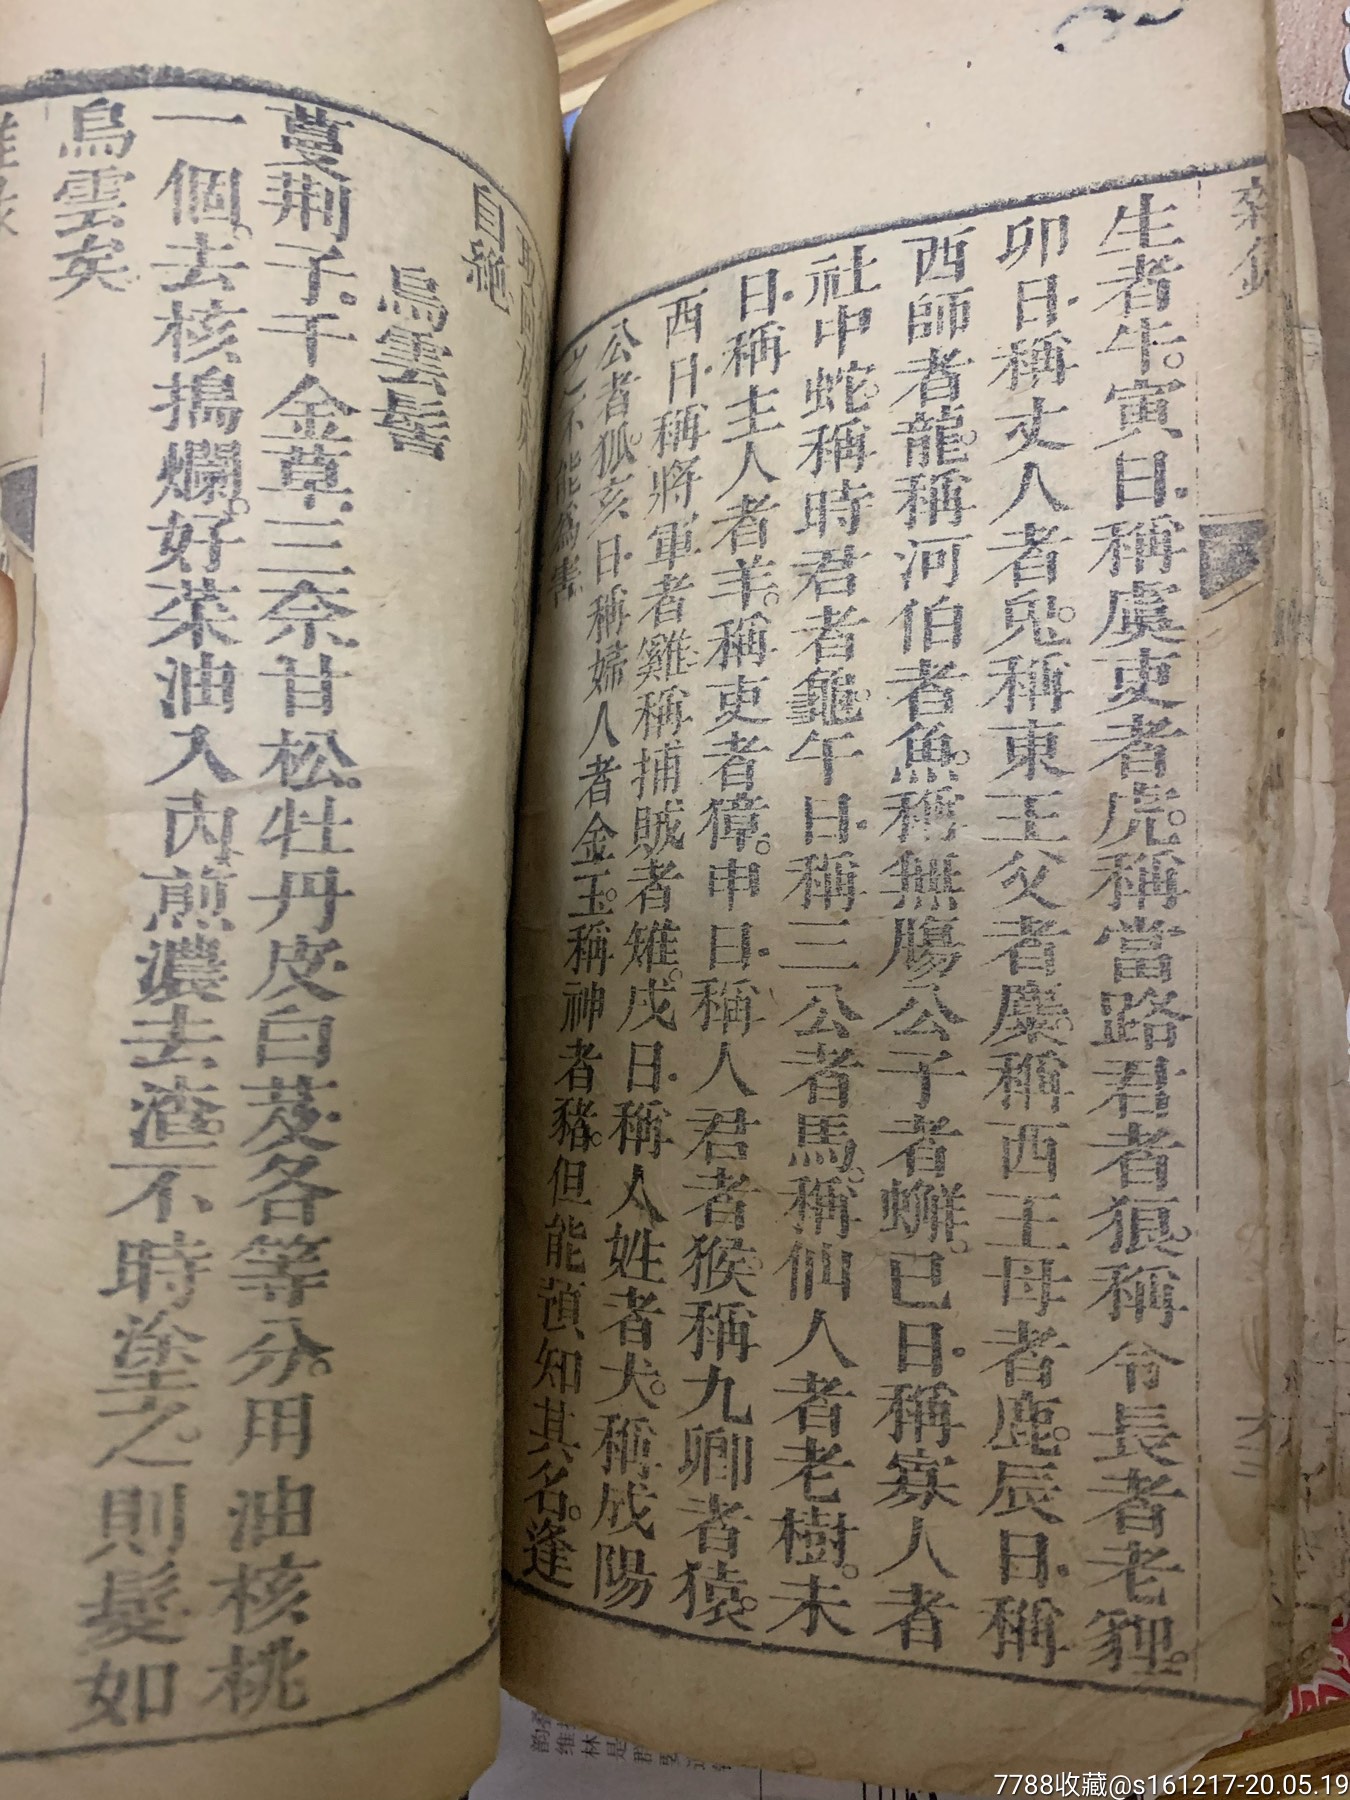 雜錄
生者牛。寅日稱虞吏者虎。稱當路君者狼。稱令長者老貍。
卯日稱丈人者兔。稱東王父者麋。稱西王母者鹿。辰日稱
雨師者龍。稱河伯者魚。稱無腸公子者蠏。巳日稱寡人者
社中蛇。稱時君者龜。午日稱三公者馬。稱仙人者老樹。未
日稱主人者羊。稱吏者獐。申日稱人君者猴。稱九卿者猿。
酉日稱將軍者雞。稱捕賊者雉。戌日稱人姓者犬。稱成陽
公者狐。亥日稱婦人者金玉。稱神者豬。但能預知其名。逢
之不能為害
自絶
烏雲髻
蔓荆子。千金草、三奈、甘松。牡丹皮、白芨、各等分。用油核桃
一個。去核搗爛。好菜油入內煎濃去渣。不時塗之。則髮如
烏雲矣
7788收藏@s161217-20.05.19